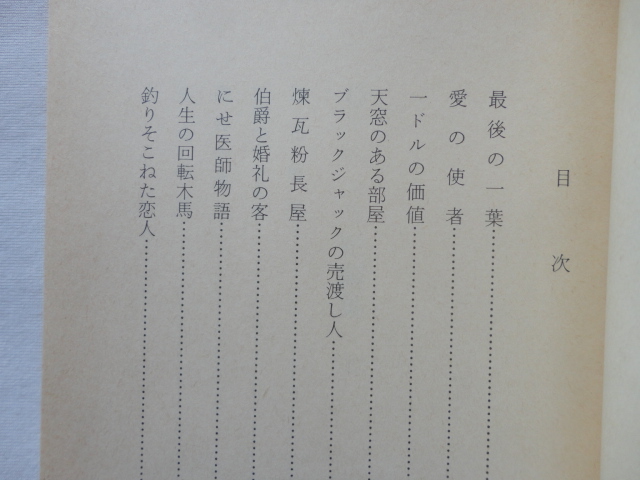 目次
最後の一葉
愛の使者
一ドルの価値
天窓のある部屋
ブラックジャックの売渡し人
煉瓦粉長屋
伯爵と婚礼の客
にせ医師物語
人生の回転木馬
釣りそこねた恋人